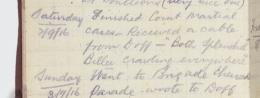 Saturday Finished Court Martial
2/9/16 cases Received a cable
from Boff - "Both Splendid
Billee crawling everywhere"
Sunday Went to Brigade Church
3/9/16 Parade wrote to Boff